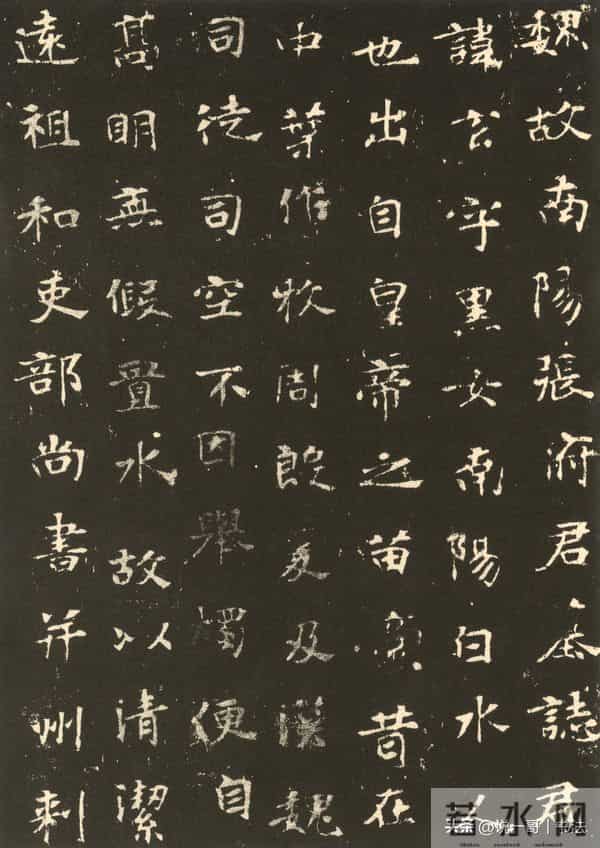 魏故南陽張府君墓誌君
諱玄字黑女南陽白水人
也出自皇帝之苗裔昔在
中葉作牧周殷爰及漢魏
司徒司空不因舉燭便自
髙明無假置水故以清潔
遠祖和吏部尚書并州刺
若水网
头条 一哥丨书法